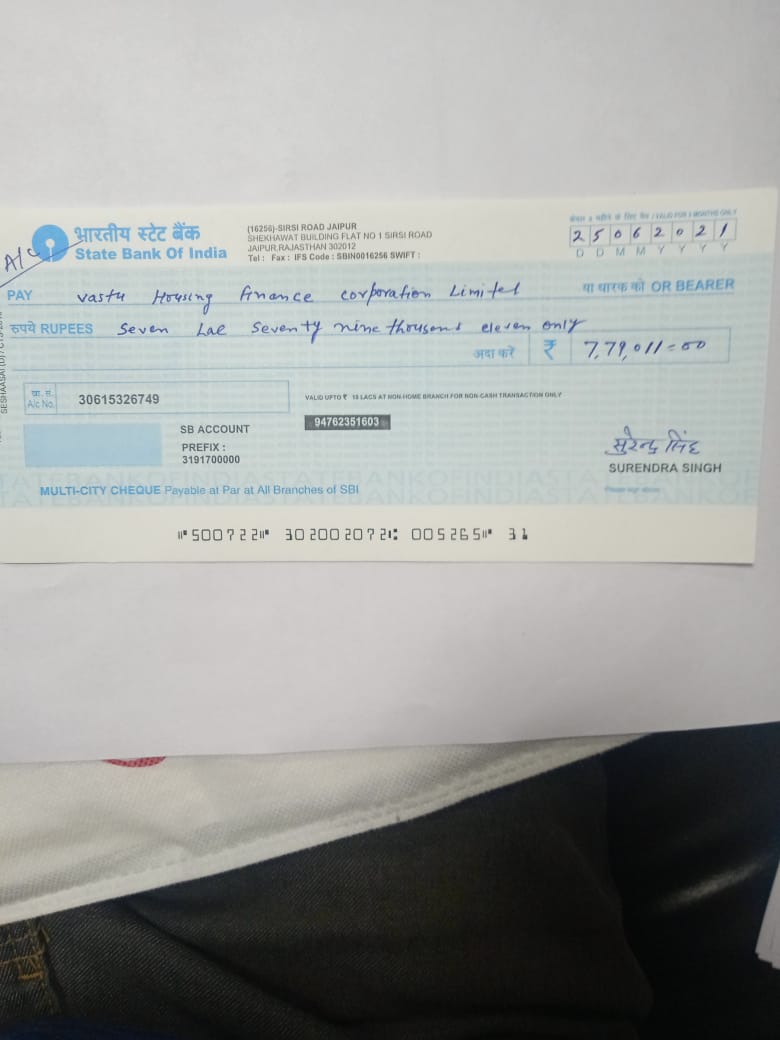 केवल 3 महीने के लिए वैध / VALID FOR 3 MONTHS ONLY
भारतीय स्टेट बैंक
State Bank Of India
(16256)-SIRSI ROAD JAIPUR
SHEKHAWAT BUILDING FLAT NO 1 SIRSI ROAD
JAIPUR,RAJASTHAN 302012
Tel : Fax : IFS Code : SBIN0016256 SWIFT :
25062021
D D M M Y Y Y Y
A/c
PAY vastu Housing finance corporation Limited या धारक को OR BEARER
रुपये RUPEES Seven Lac Seventy nine thousand eleven only
अदा करें ₹ 7,79,011=00
खा. सं.
A/c No. 30615326749
VALID UPTO ₹ 10 LACS AT NON-HOME BRANCH FOR NON-CASH TRANSACTION ONLY
94762351603
SB ACCOUNT
PREFIX :
3191700000
सुरेन्द्र सिंह
SURENDRA SINGH
MULTI-CITY CHEQUE Payable at Par at All Branches of SBI
⑈500722⑈ 302002072⑆ 005265⑈ 31